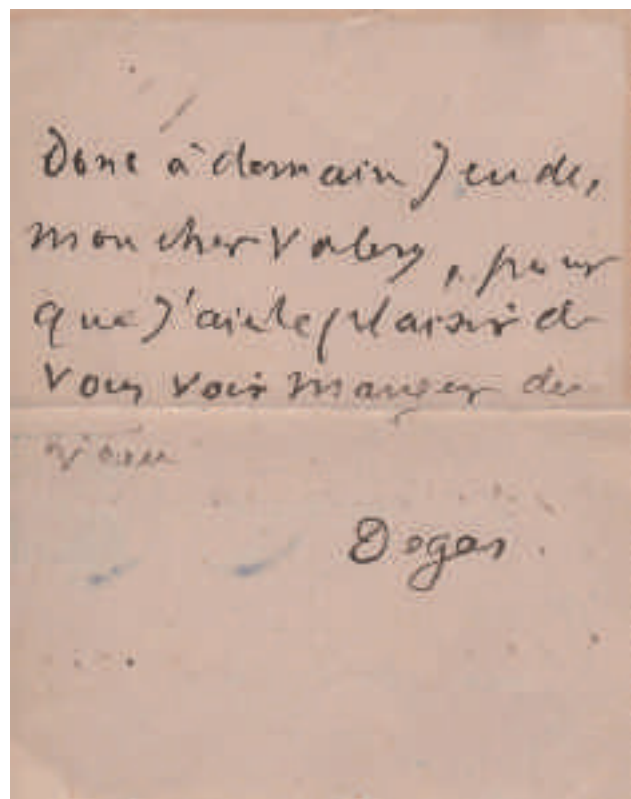 Donc à demain Jeudi,
mon cher Valery, pour
que j'aie le plaisir de
vous voir manger du
Degas